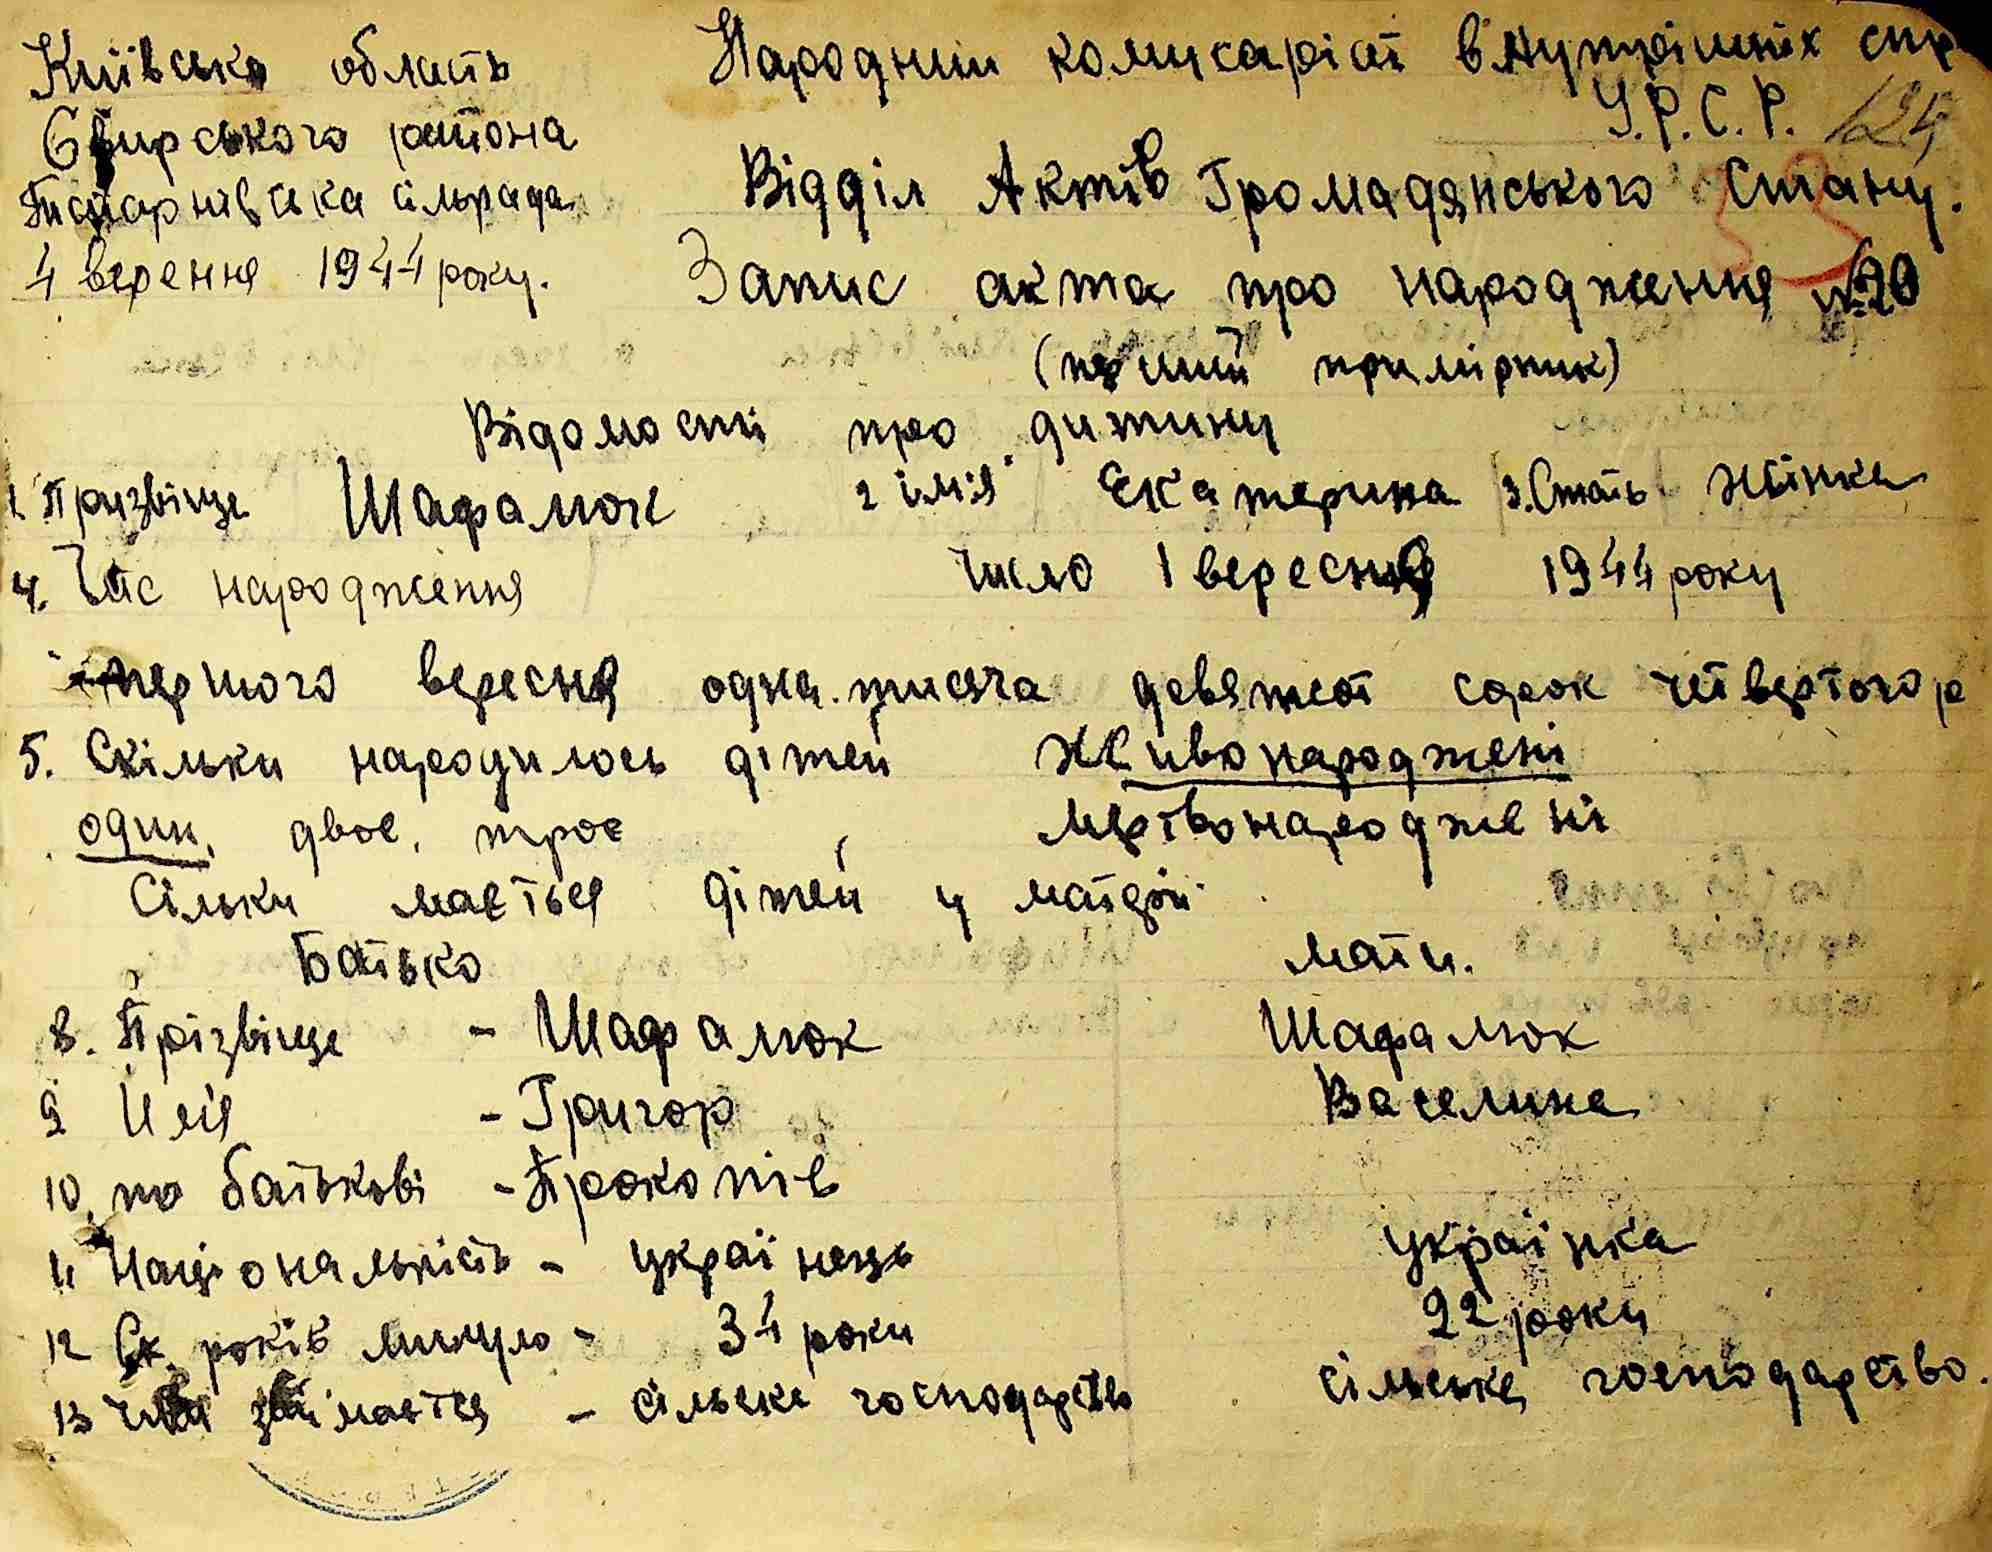 Київська область
Народний комисаріят внутрішніх спр
Сквирського района
У.Р.С.Р. 124
Писарівська сільрада
Відділ Актів Громадянського Стану.
4 вереня 1944 року.
Запис акта про народження №20
(перший примірник)
Відомості про дитину
1. Призвіще Шафалюк 2 імя Екатерина 3. Стать Жінка
4. Час народження число 1 вересня 1944 року
першого вересня одна тисяча девятсот сорок четвертого р
5. Скільки народилось дітей Живонароджені
один, двоє, троє мертвонароджені
Сільки мається дітей у матері
Батько мати.
8. Прізвіще - Шафалюк Шафалюк
9 Имя - Григор Василина
10. по батькові - Прокопів
11 Національність - українець українка
12 Ск. років минуло - 34 роки 22 роки
13 Чим займається - сільське господарство сільське господарство.